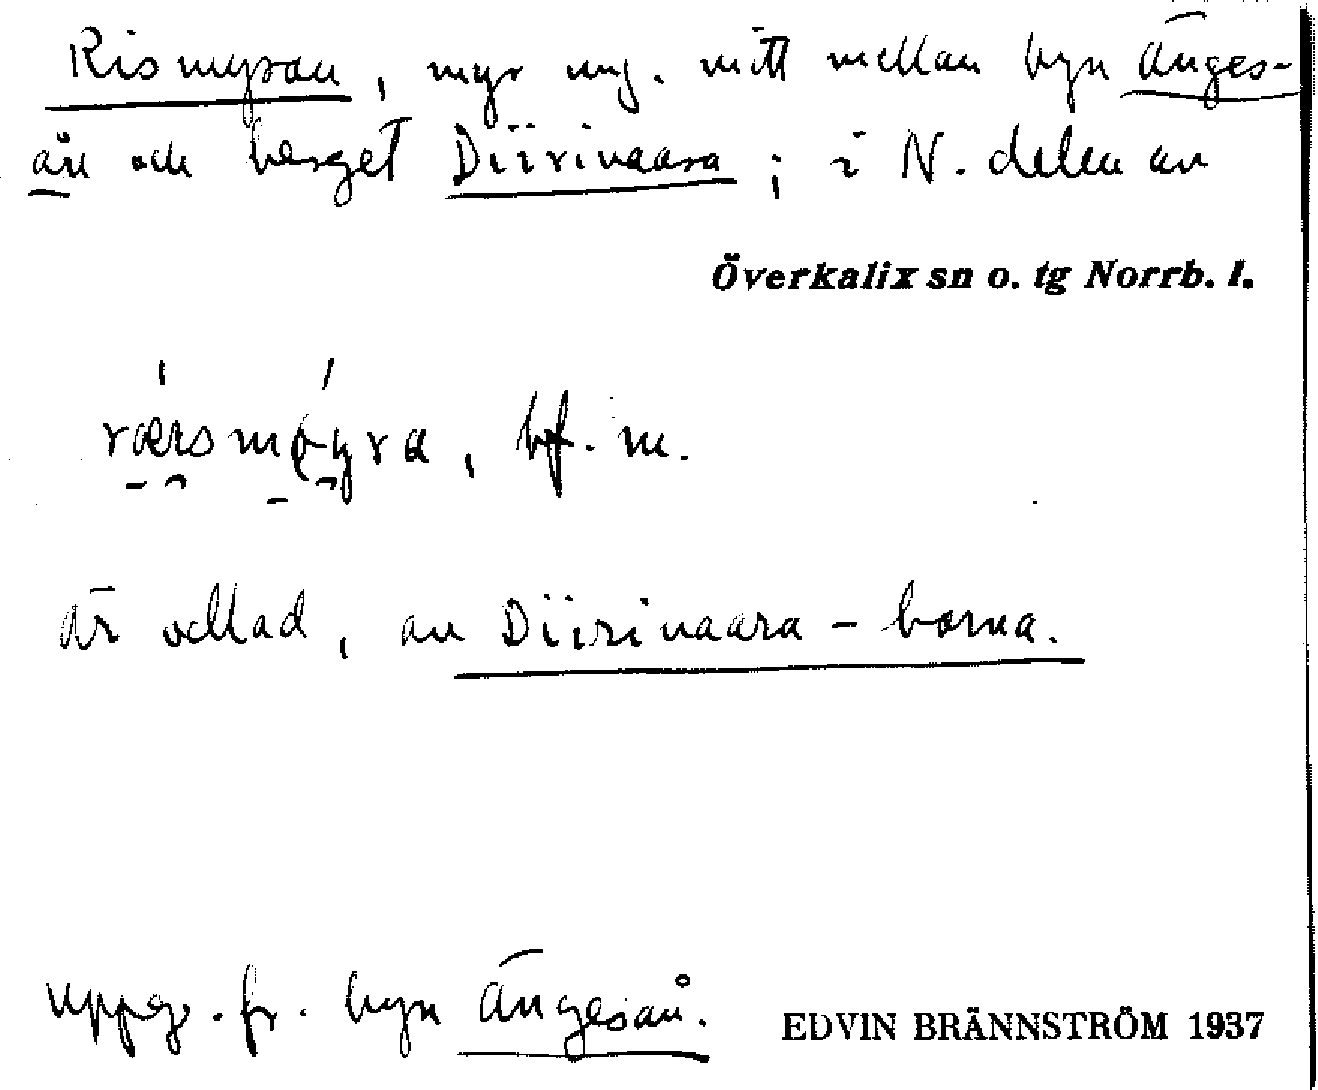 Rismyran, myr ung. mitt mellan byn Änges-
ån och berget Diirivaara; i N. delen av
Överkalix sn o. tg Norrb. l.
bf. m.
är odlad, av Diirivaara-borna.
Uppg. fr. byn Ängesån.
EDVIN BRÄNNSTRÖM 1937